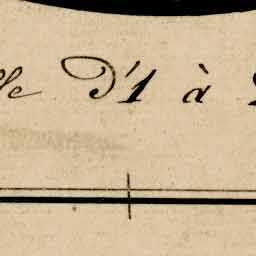 lle D'1 à